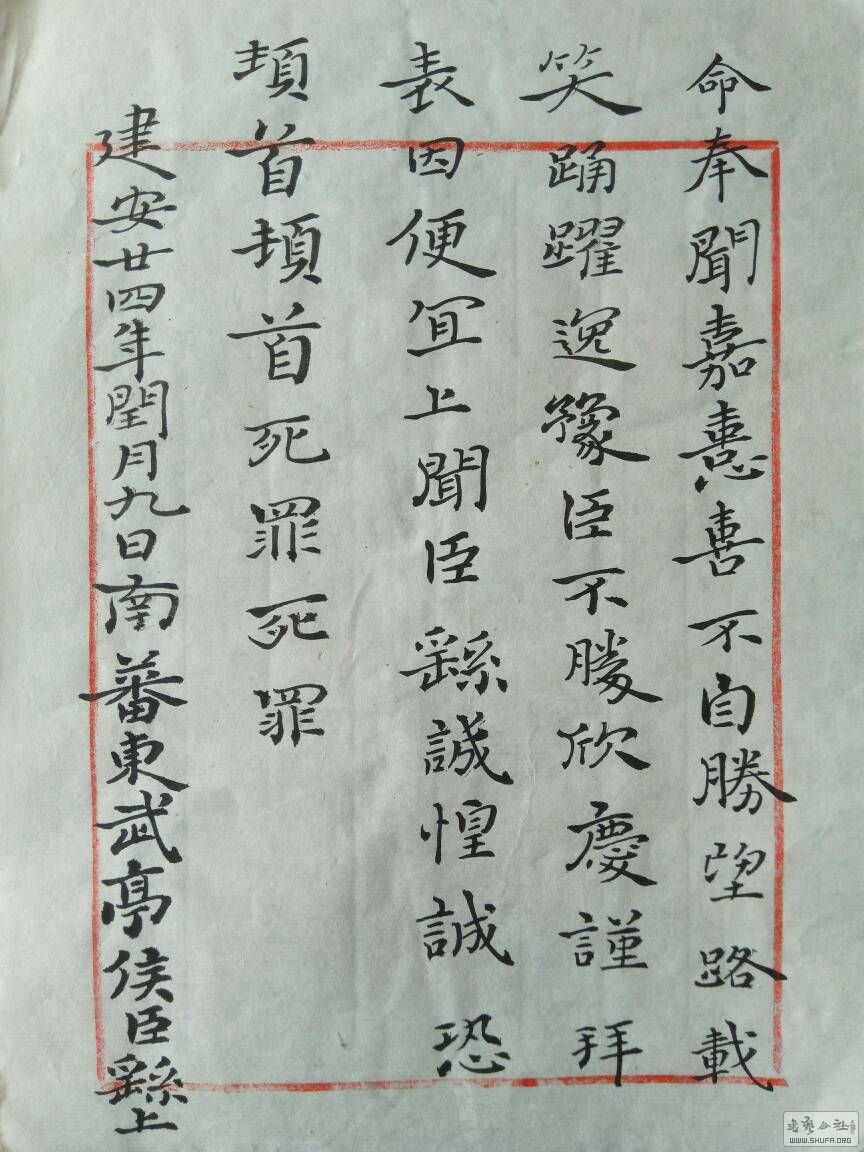 命奉聞嘉憙喜不自勝望路載
笑踊躍逸豫臣不勝欣慶謹拜
表因便宜上聞臣繇誠惶誠恐
頓首頓首死罪死罪
建安廿四年閏月九日南蕃東武亭侯臣繇上
WWW.SHUFA.ORG